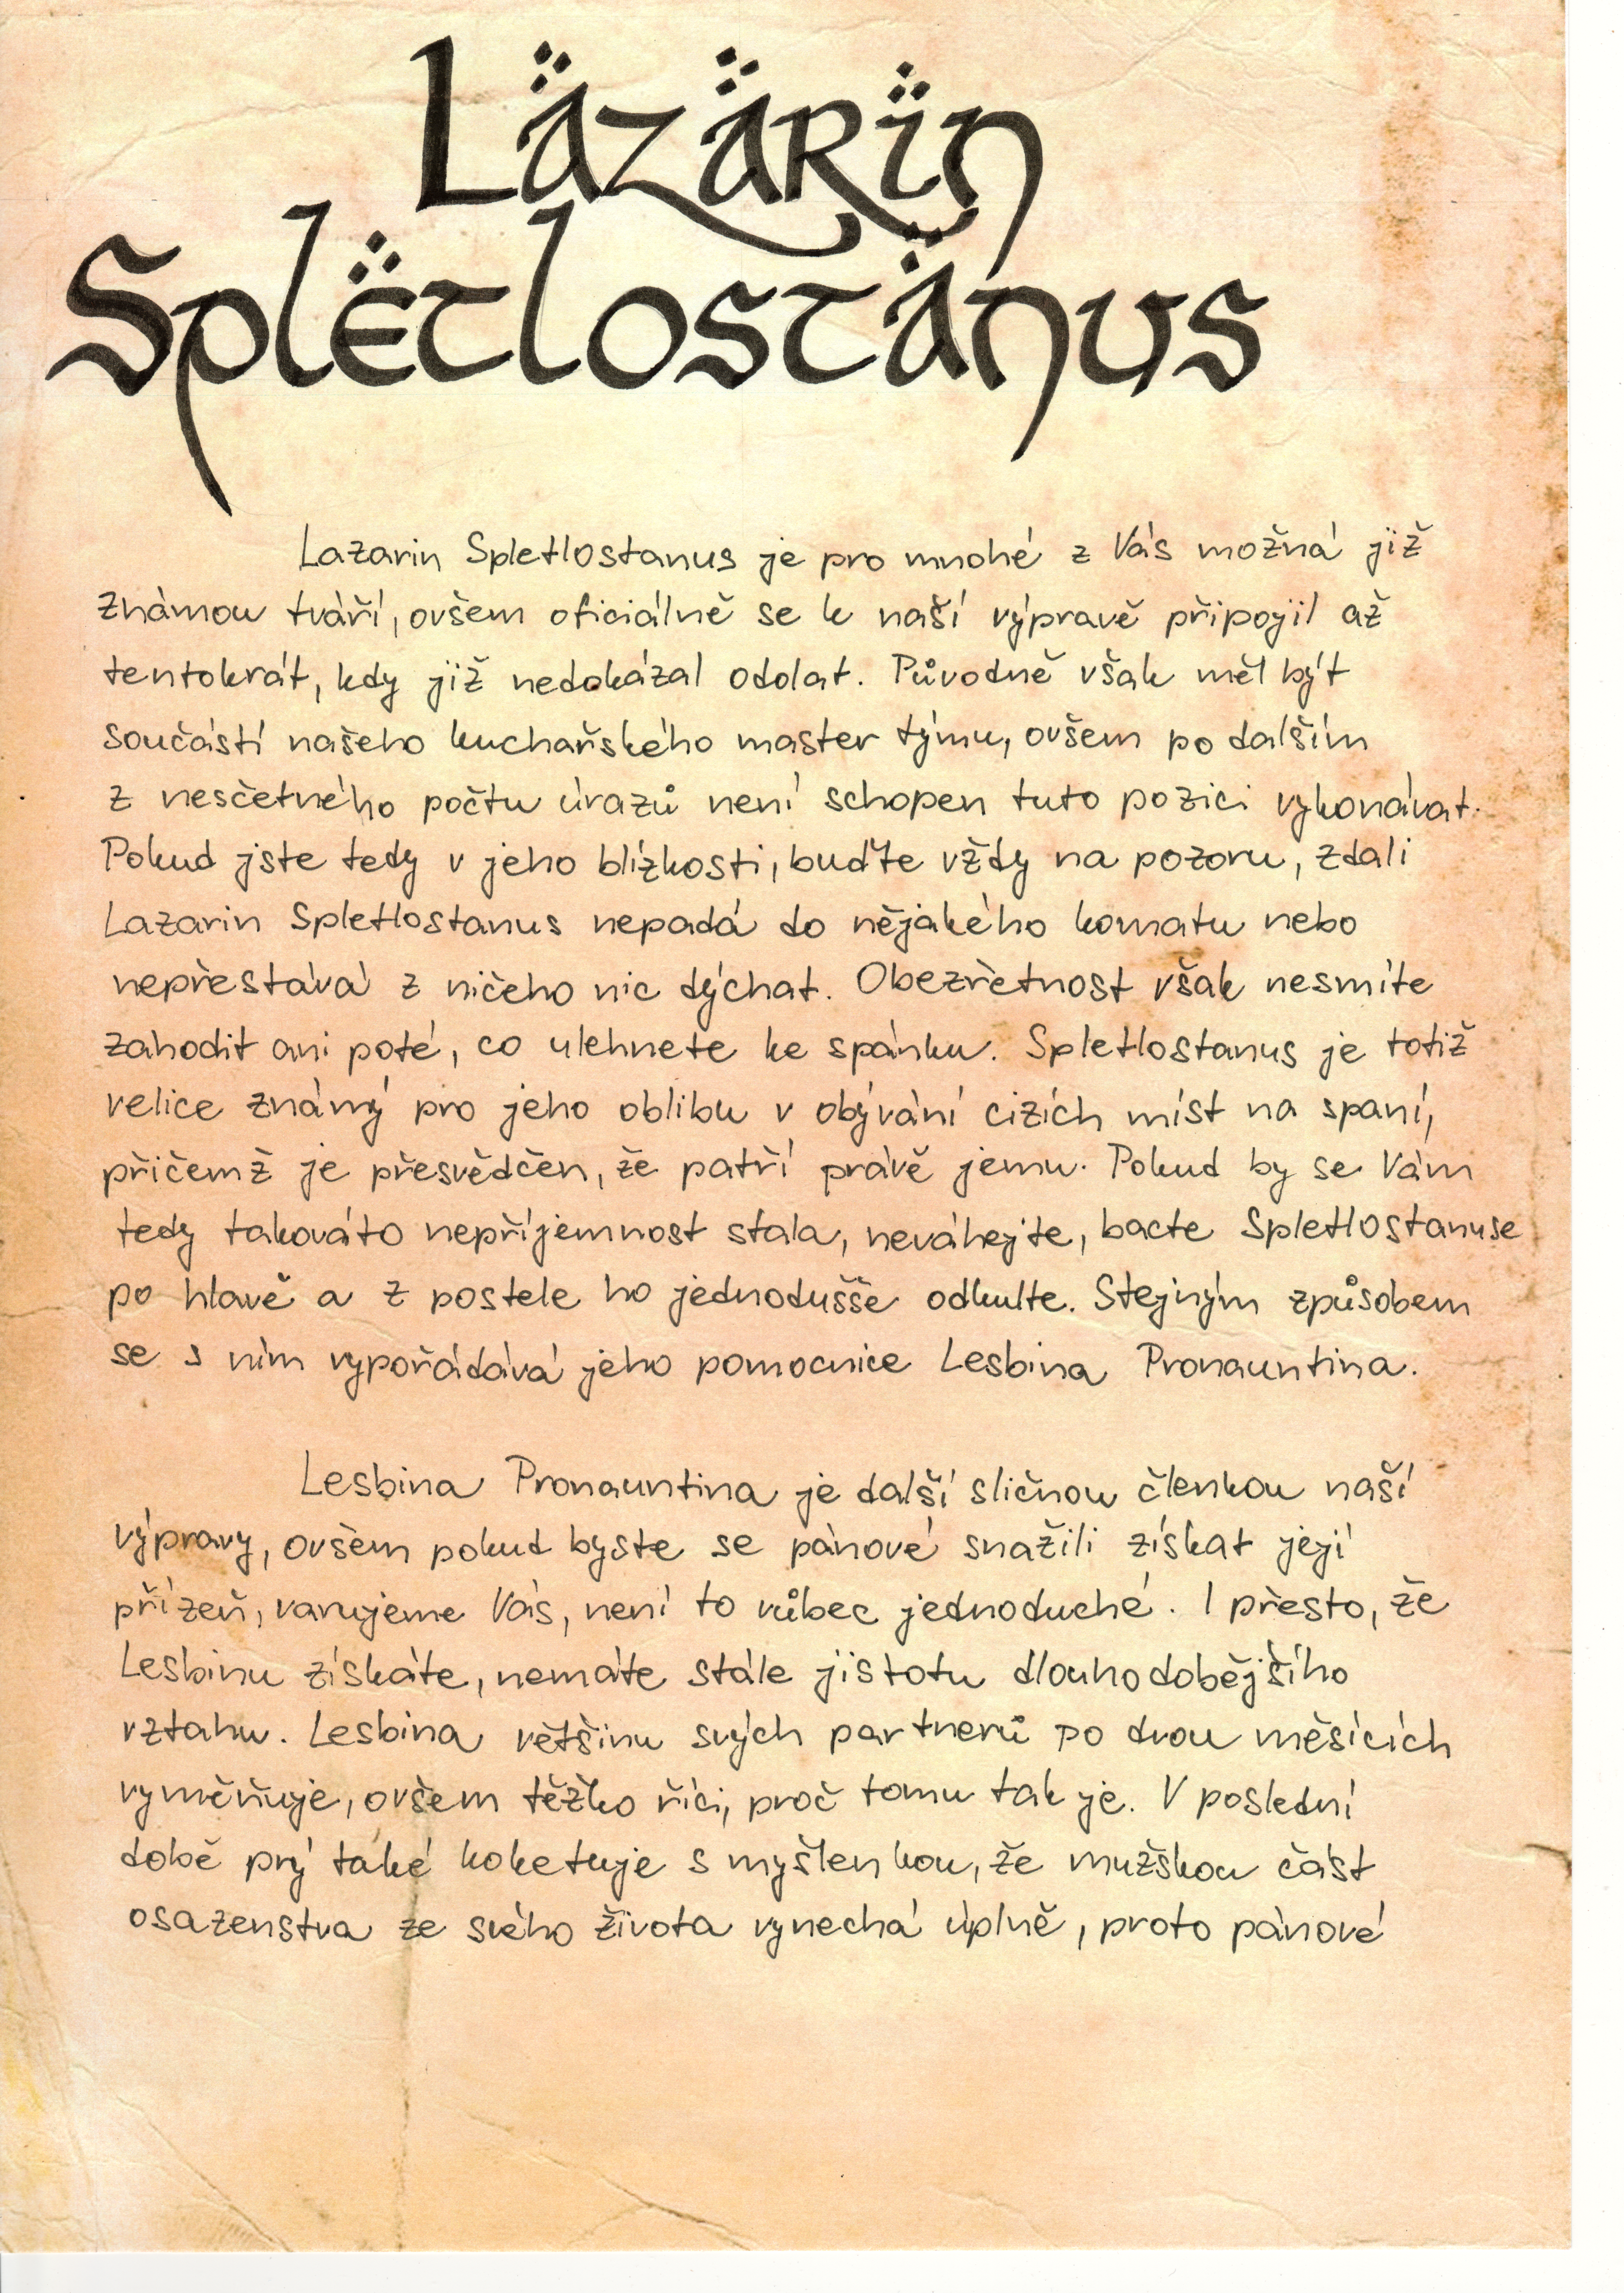 Läzärïn
Splëtlostänus
Lazarin Spletlostanus je pro mnohé z Vás možná již
známou tváří, ovšem oficiálně se k naší výpravě připojil až
tentokrát, kdy již nedokázal odolat. Původně však měl být
součástí našeho kuchařského master týmu, ovšem po dalším
z nesčetného počtu úrazů není schopen tuto pozici vykonávat.
Pokud jste tedy v jeho blízkosti, buďte vždy na pozoru, zdali
Lazarin Spletlostanus nepadá do nějakého komatu nebo
nepřestává z ničeho nic dýchat. Obezřetnost však nesmíte
zahodit ani poté, co ulehnete ke spánku. Spletlostanus je totiž
velice známý pro jeho oblibu v obývání cizích míst na spaní,
přičemž je přesvědčen, že patří právě jemu. Pokud by se Vám
tedy takováto nepříjemnost stala, neváhejte, bacte Spletlostanuse
po hlavě a z postele ho jednodušše odkulte. Stejným způsobem
se s ním vypořádává jeho pomocnice Lesbina Pronauntina.
Lesbina Pronauntina je další sličnou členkou naší
výpravy, ovšem pokud byste se pánové snažili získat její
přízeň, varujeme Vás, není to vůbec jednoduché. I přesto, že
Lesbinu získáte, nemáte stále jistotu dlouhodobějšího
vztahu. Lesbina většinu svých partnerů po dvou měsících
vyměňuje, ovšem těžko říci, proč tomu tak je. V poslední
době prý také koketuje s myšlenkou, že mužskou část
osazenstva ze svého života vynechá úplně, proto pánové